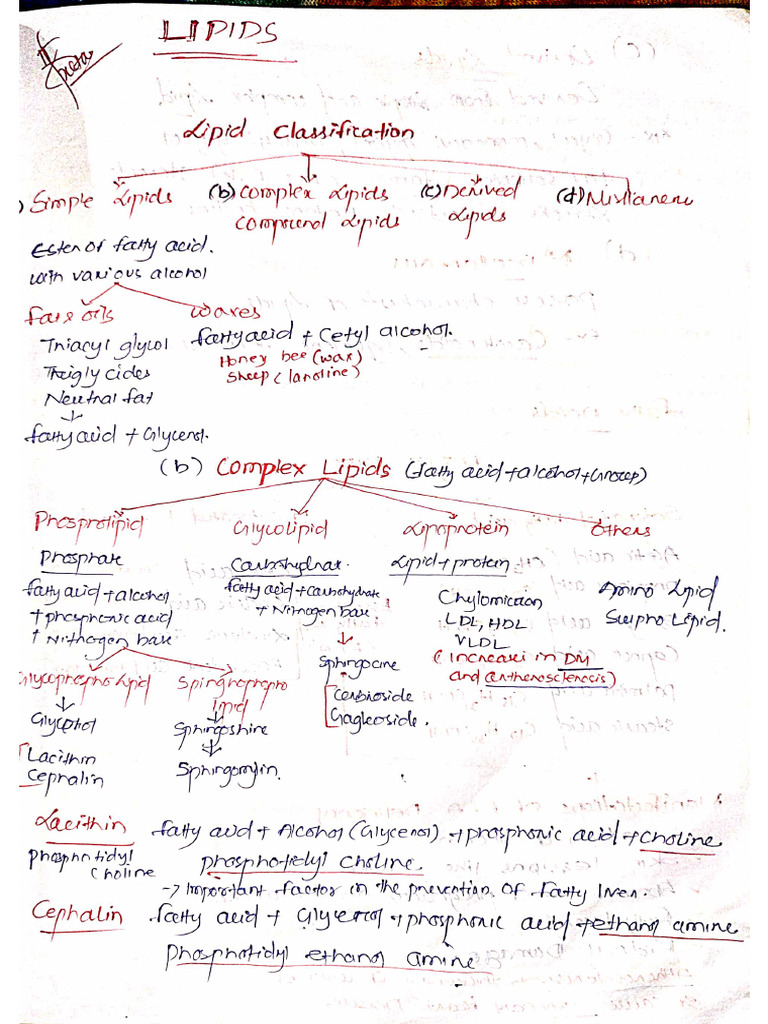 LIPIDS
Lipid Classification
) Simple Lipids (b) Complex Lipids (c) Derived (d) Misllanene
Compound Lipids Lipids
Ester of fatty acid.
with various alcohol
fats oils waxes
Triacyl glycol fatty acid + Cetyl alcohol.
Honey bee (wax)
Thigly cides Sheep (lanoline)
Neutral fat
fatty acid + Glycerol.
(b) Complex Lipids (fatty acid + alcohol + Group)
Phospholipid Glycolipid Lipoprotein Others
Phosphate Carbohydrar. Lipid + protein
fatty acid + alcohol fatty acid + Carbohydrate Chylomicron Amino Lipid
+ phosphoric acid + Nitrogen base LDL, HDL Sulpho Lipid.
+ Nithogen base VLDL
Sphingocine (increases in DM
and artherosclerosis)
Glycophospho Lipid Spinghophospho Cerbroside
lipid Gagleoside.
Glycerol Sphingoshine
Lacithin
Cephalin Sphingomylin.
Lacithin fatty acid + Alcohol (Glycerol) + phosphoric acid + choline
phosphotidyl
Choline phosphotidyl choline.
-> Important factor in the prevention of fatty liver.
Cephalin fatty acid + Glycerol + phosphoric acid + ethanol amine
Phosphotidyl ethanol amine